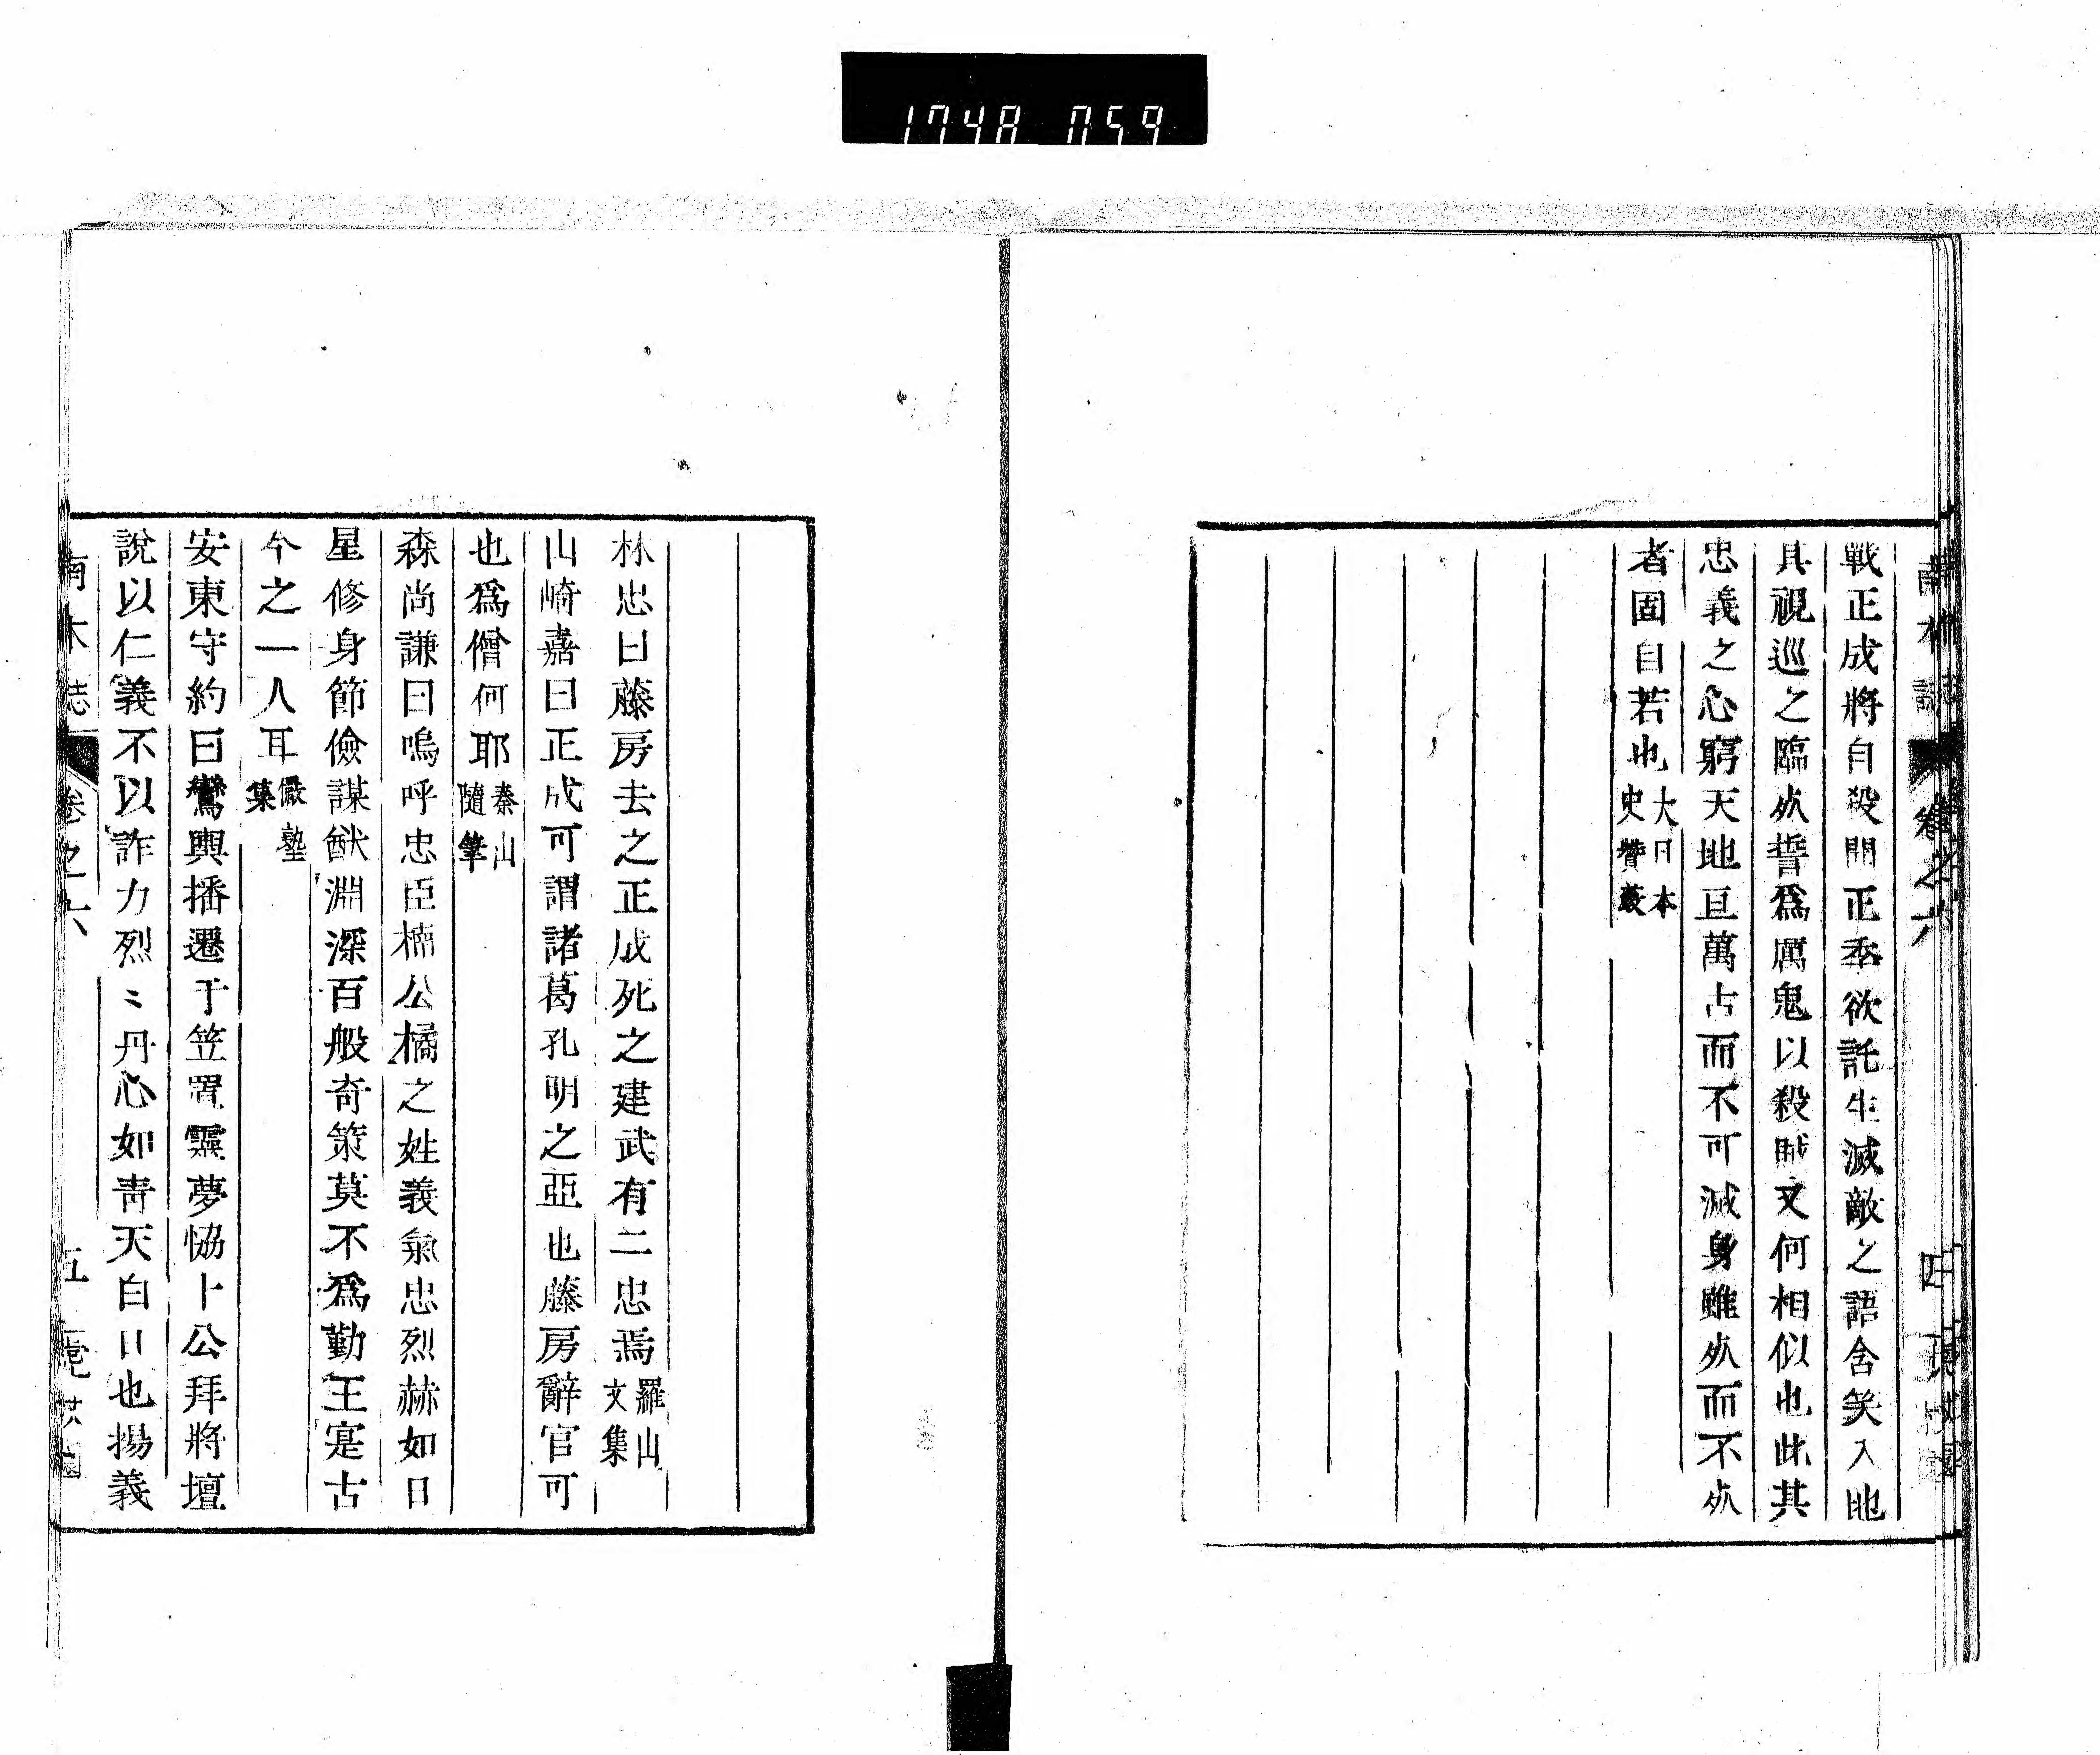 1748 059
南木誌 卷之六 四
戰正成將自殺問正季欲託生滅敵之語含笑入地
其視巡之臨㱿誓爲厲鬼以殺賊又何相似也此其
忠義之心窮天地亘萬古而不可滅身雖㱿而不㱿
者固自若也大日本史贊藪
林忠曰藤房去之正成死之建武有二忠焉羅山文集
山崎嘉曰正成可謂諸葛孔明之亞也藤房辭官可
也爲僧何耶秦山隨筆
森尚謙曰嗚呼忠臣楠公橘之姓義氣忠烈赫如日
星修身節儉謀猷淵深百般奇策莫不爲勤王寔古
今之一人耳儼塾集
安東守約曰鸞輿播遷于笠置靈夢恊卜公拜將壇
說以仁義不以詐力烈〻丹心如青天白日也揚義
南木誌 卷之六 五